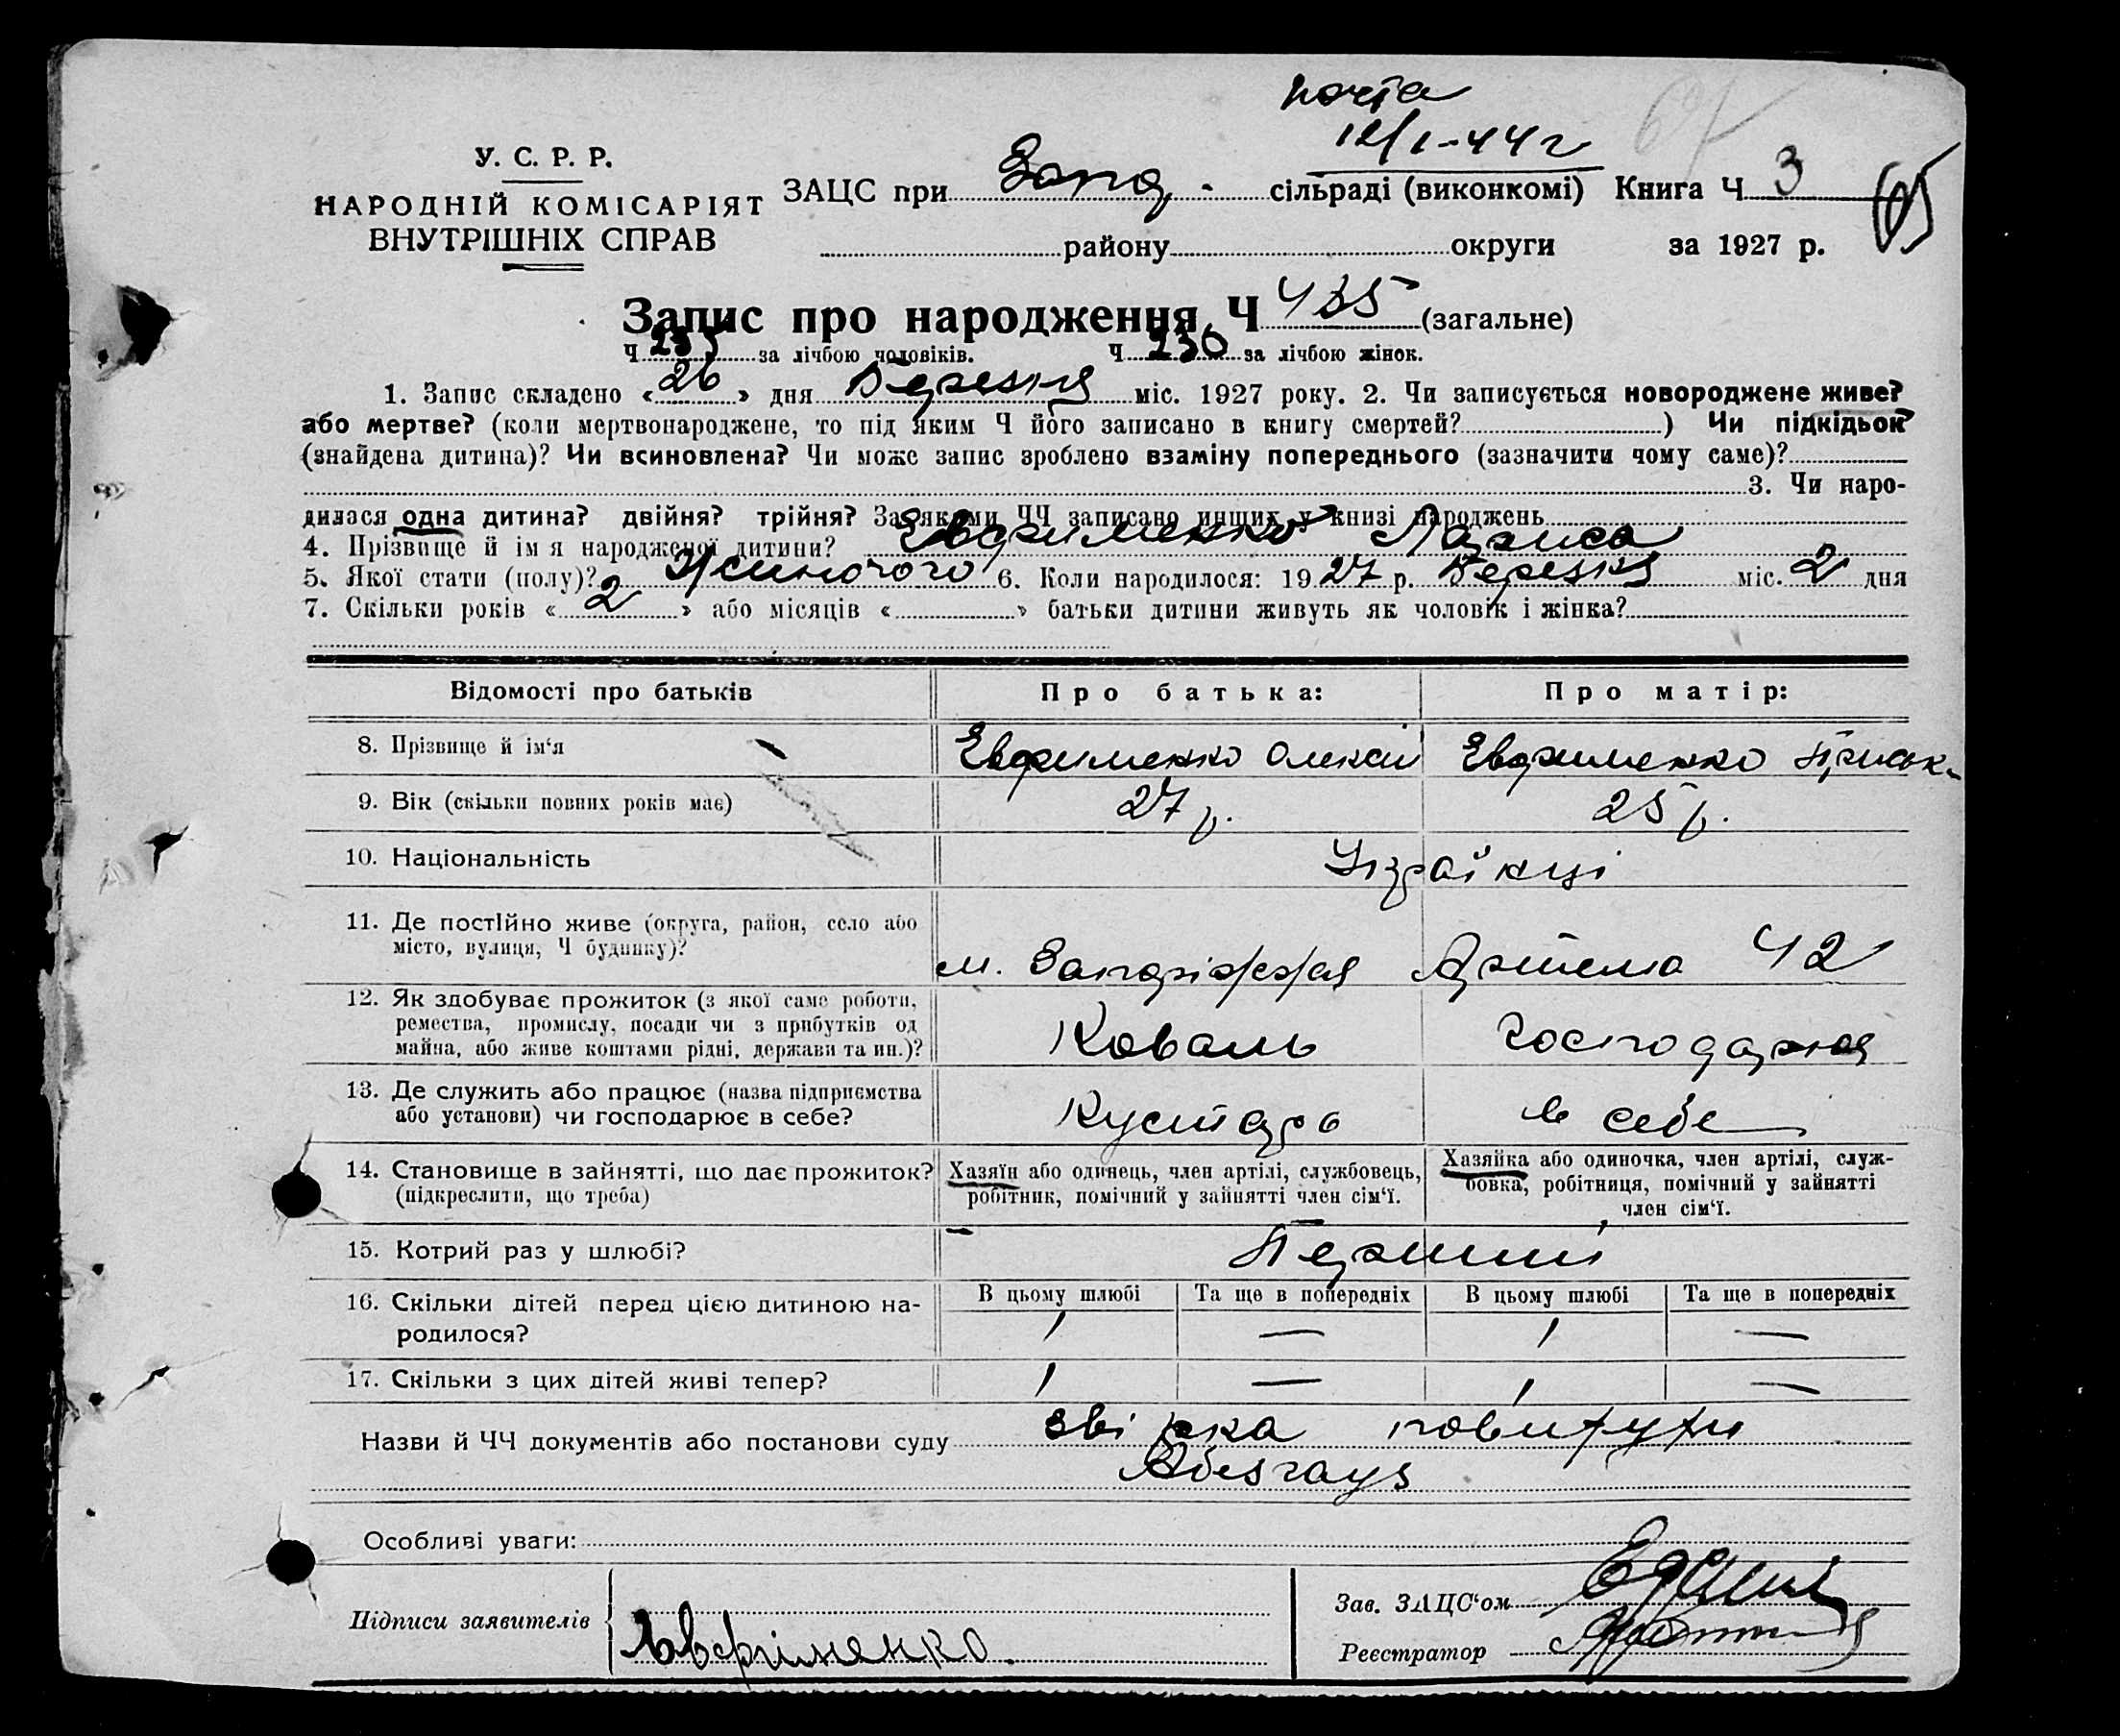 почта
12/I-44г
У. С. Р. Р.
НАРОДНІЙ КОМІСАРІЯТ
ВНУТРІШНІХ СПРАВ
ЗАЦС при Запор - сільраді (виконкомі) Книга Ч 3
65
району округи за 1927 р.
Запис про народження Ч 435 (загальне)
Ч за лічбою чоловіків. Ч 230 за лічбою жінок.
1. Запис складено « 26 » дня Березня міс. 1927 року. 2. Чи записується новороджене живе?
або мертве? (коли мертвонароджене, то під яким Ч його записано в книгу смертей? ) Чи підкідьок
(знайдена дитина)? Чи всиновлена? Чи може запис зроблено взаміну попереднього (зазначити чому саме)?
3. Чи наро-
дилася одна дитина? двійня? трійня? За якими ЧЧ записано инших у книзі народжень
4. Прізвище й ім я народженої дитини? Евфименко Лариса
5. Якої статі (полу)? Жиночого 6. Коли народилося: 19 27 р. Березня міс. 2 дня
7. Скільки років « 2 » або місяців « » батьки дитини живуть як чоловік і жінка?
Відомості про батьків Про батька: Про матір:
8. Прізвище й ім‘я Евфименко Олексій Евфименко Приськ
9. Вік (скільки повних років має) 27 р. 25 р.
10. Національність Українці
11. Де постійно живе (округа, район, село або
місто, вулиця, Ч будинку)?
м. Запоріжжя Артема 42
12. Як здобуває прожиток (з якої саме роботи,
ремества, промислу, посади чи з прибутків од
майна, або живе коштами рідні, держави та ин.)?
Коваль Господарюя
13. Де служить або працює (назва підприємства
або установи) чи господарює в себе?
Кустарь в себе
14. Становище в зайнятті, що дає прожиток?
(підкреслити, що треба)
Хазяїн або одинець, член артілі, службовець,
робітник, помічний у зайнятті член сім‘ї.
Хазяйка або одиночка, член артілі, служ-
бовка, робітниця, помічний у зайнятті
член сім‘ї.
15. Котрий раз у шлюбі? Перший
16. Скільки дітей перед цією дитиною на-
родилося?
В цьому шлюбі Та ще в попередніх В цьому шлюбі Та ще в попередніх
1 — 1 —
17. Скільки з цих дітей живі тепер? 1 — 1 —
Назви й ЧЧ документів або постанови суду звірка повитухи
Особливі уваги:
Підписи заявителів Евфименко.
Зав. ЗАЦС‘ом
Реєстратор